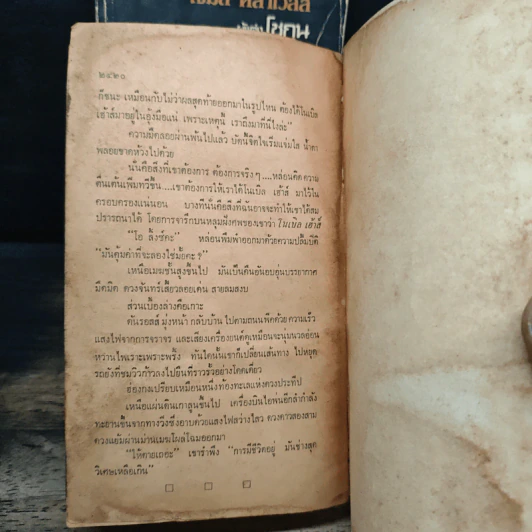 เจมส์ คลาเวลล์
โชกุน
๒๔๒๐
ภัชนะ เหมือนกับไม่ว่าผลสุดท้ายออกมาในรูปไหน ต้องได้โนเบิล
เฮ้าส์มาอยู่ในอุ้งมือแน่ เพราะเหตุนี้ เราถึงมาที่นี่ไงล่ะ"
ความมืดลอยผ่านพ้นไปแล้ว บัดนี้จิตใจเริ่มแจ่มใส น้ำตา
พลอยขาดห้วงไปด้วย
นั่นคือสิ่งที่เขาต้องการ ต้องการจริง ๆ ....หล่อนคิด ความ
ตื่นเต้นเพิ่มทวีขึ้น....เขาต้องการให้เราได้โนเบิล เฮ้าส์ มาไว้ใน
ครอบครองแน่นอน บางทีนั่นคือสิ่งที่ฉันอาจจะทำให้เขาได้สม
ปรารถนาได้ โดยการจารึกบนหลุมฝังศพของเขาว่า โนเบิล เฮ้าส์
"โอ ลิ้งซ์คะ" หล่อนพึมพำออกมาด้วยความปลื้มปีติ
"มันคุ้มค่าที่จะลองใช่มั้ยคะ ?"
เหนือเมฆชั้นสูงขึ้นไป มันเป็นคืนอันอบอุ่นบรรยากาศ
มืดมิด ดวงจันทร์เสี้ยวลอยเด่น สายลมสงบ
ส่วนเบื้องล่างคือเกาะ
ดันรอสส์ มุ่งหน้า กลับบ้าน ไปตามถนนพีคด้วย ความเร็ว
แสงไฟจากการจราจร และเสียงเครื่องยนต์ดูเหมือนจะนุ่มนวลอ่อน
หวานไพเราะเพราะพริ้ง ทันใดนั้นเขาก็เปลี่ยนเส้นทาง ไปหยุด
รถยังที่ชมวิวก้าวลงไปยืนที่ราวรั้วอย่างโดดเดี่ยว
ฮ่องกงเปรียบเหมือนหนึ่งท้องทะเลแห่งดวงประทีป
เหนือแผ่นดินเกาลูนขึ้นไป เครื่องบินไอพ่นอีกลำกำลัง
ทะยานขึ้นจากทางวิ่งซึ่งอาบด้วยแสงไฟสว่างไสว ดวงดาวสองสาม
ดวงแย้มผ่านม่านเมฆโผล่โฉมออกมา
"ให้ตายเถอะ" เขารำพึง "การมีชีวิตอยู่ มันช่างสุด
วิเศษเหลือเกิน"